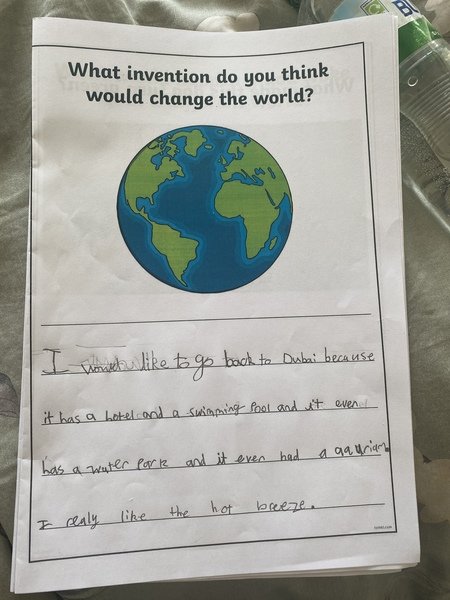 What invention do you think
would change the world?
I would like to go back to Dubai because
it has a hotel and a swimming Pool and it even
has a water Park and it even had a
I realy like the hot breeze.
twinkl.com